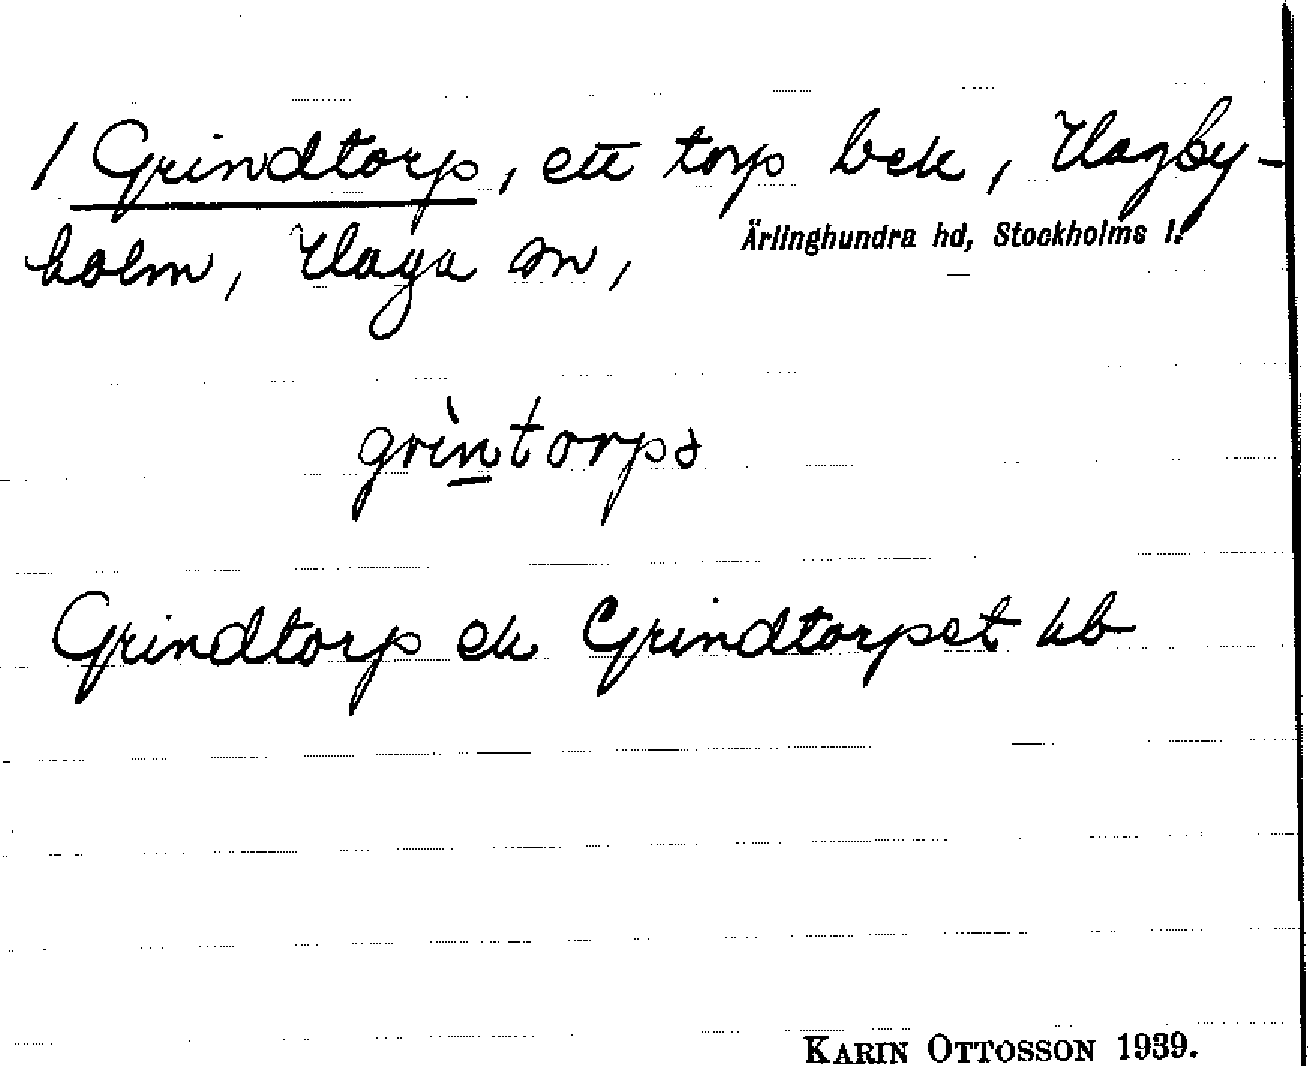 / Grindtorp, ett torp bek, Hagby-
holm, Haga sn, Ärlinghundra hd, Stockholms l.
Grindtorp ek Grindtorpet kb
KARIN OTTOSSON 1939.